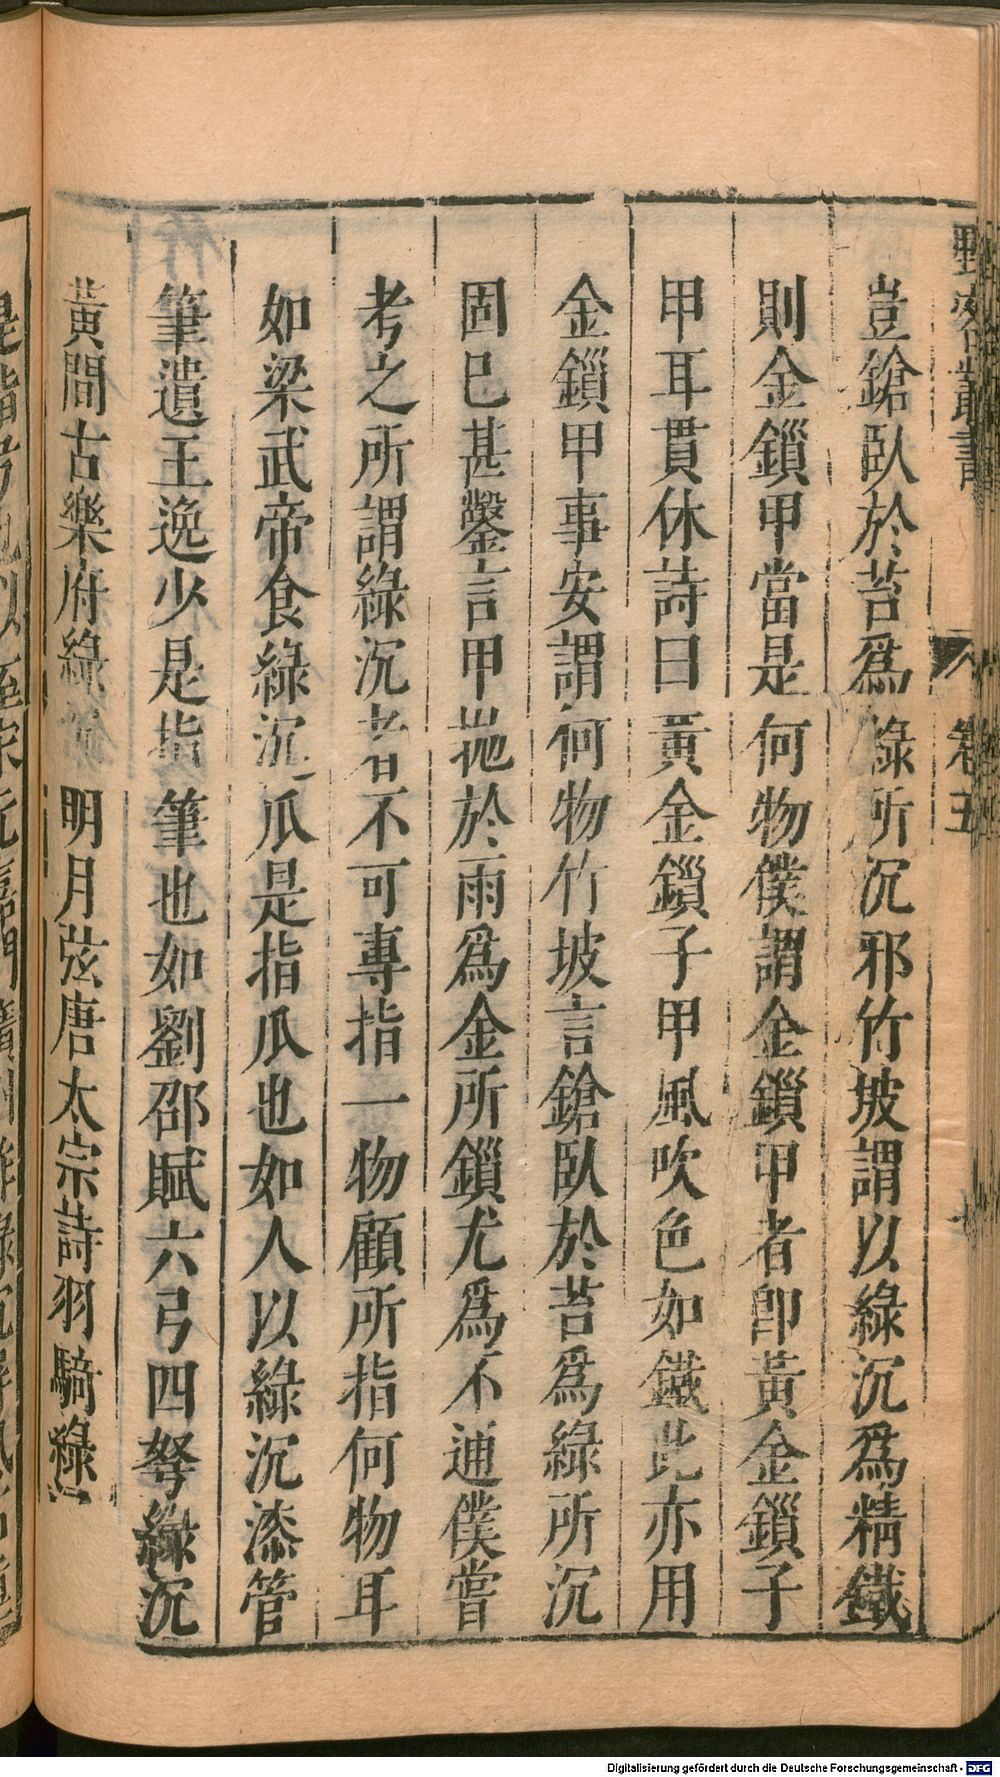 野客叢書
卷五
豈鎗臥於苔爲綠所沉邪竹坡謂以綠沉爲精鐵
則金鎖甲當是何物僕謂金鎖甲者卽黃金鎖子
甲耳貫休詩曰黃金鎖子甲風吹色如鐵此亦用
金鎖甲事安謂何物竹坡言鎗臥於苔爲綠所沉
固已甚鑿言甲抛於雨爲金所鎖尤爲不通僕嘗
考之所謂綠沉者不可專指一物顧所指何物耳
如梁武帝食綠沉瓜是指瓜也如人以綠沉漆管
筆遺王逸少是指筆也如劉邵賦六弓四弩綠沉
黃間古樂府綠沉明月弦唐太宗詩羽騎綠
Digitalisierung gefördert durch die Deutsche Forschungsgemeinschaft - DFG